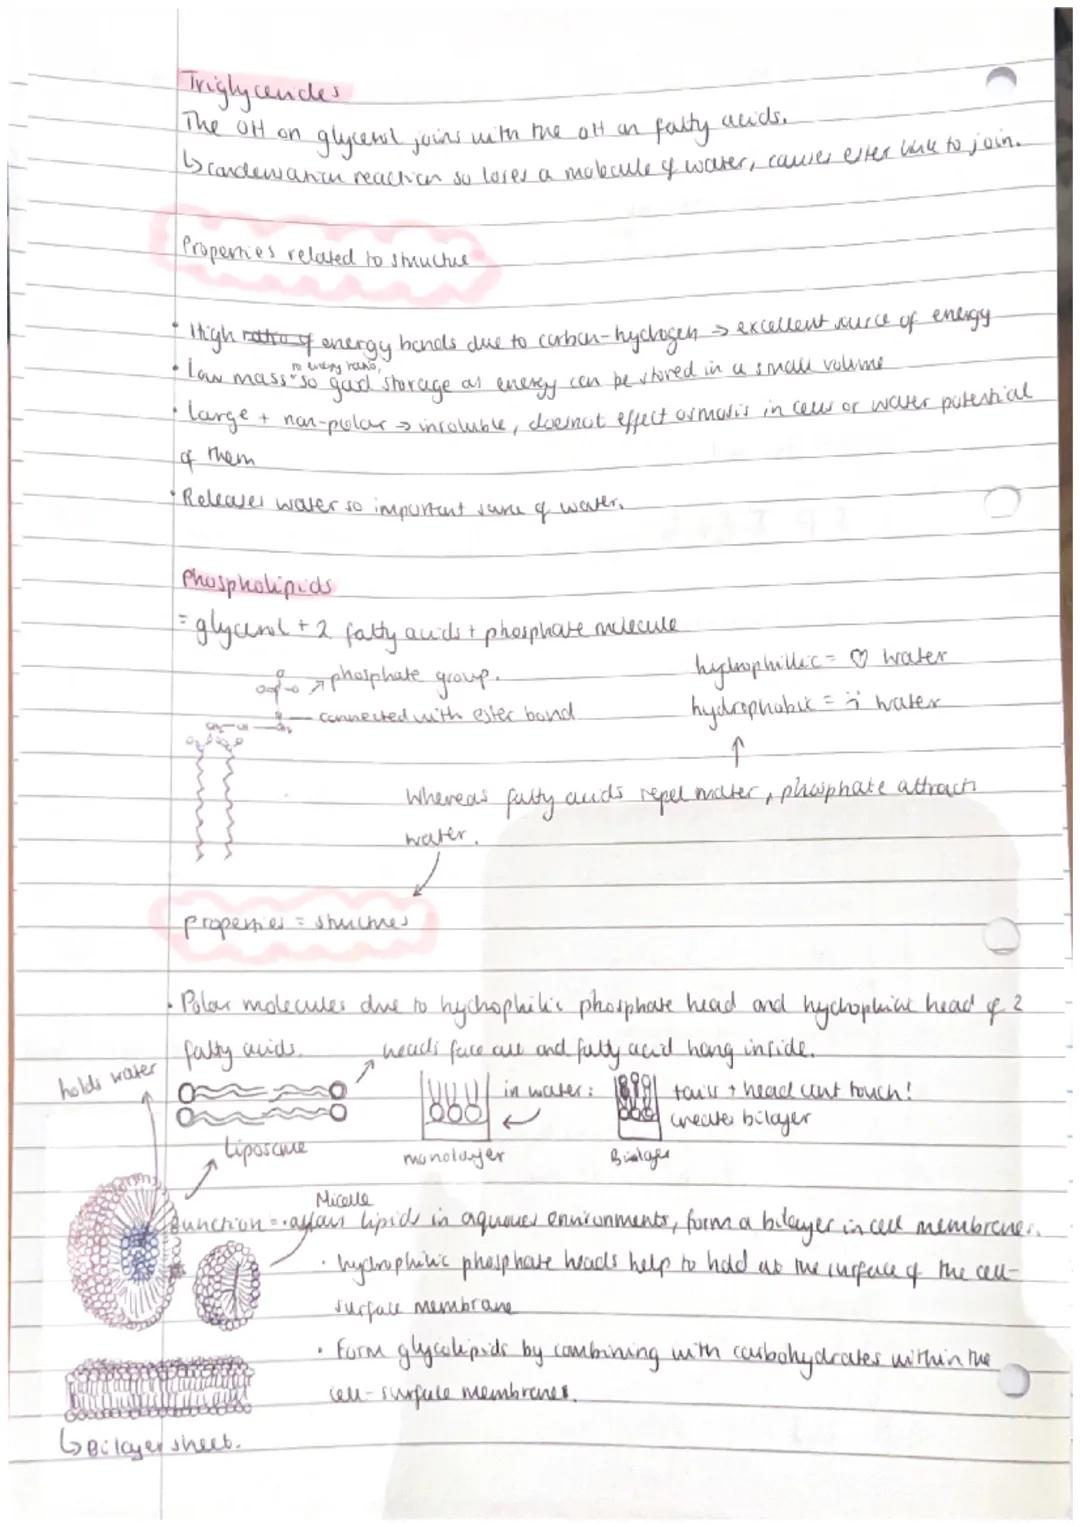 Triglycerides
The OH on glycerol joins with the OH on fatty acids.
↳ condensation reaction so loses a molecule of water, causes ester link to join.
Properties related to structure
• High ratio of energy bonds due to carbon-hydrogen → excellent source of energy
to energy ratio,
• Low mass so good storage as energy can be stored in a small volume
• Large + non-polar → insoluble, doesnot effect osmosis in cells or water potential
of them
• Releases water so important source of water.
Phospholipids
= glycerol + 2 fatty acids + phosphate molecule
phosphate group.
hydrophillic = ♡ water
connected with ester bond
hydrophobic = water
Whereas fatty acids repel water, phosphate attracts
water.
properties = structures
• Polar molecules due to hydrophilic phosphate head and head of 2
fatty acids.
heads face out and fatty acid hang inside.
holds water
in water:
tails + head cant touch!
creates bilayer
Liposome
monolayer
Bilayer
Micelle
Function = • allows lipids in aqueous environments, form a bilayer in cell membranes.
• hydrophilic phosphate heads help to hold at the surface of the cell-
surface membrane
• Form glycolipids by combining with carbohydrates within the
cell-surface membranes.
↳ Bilayer sheet.